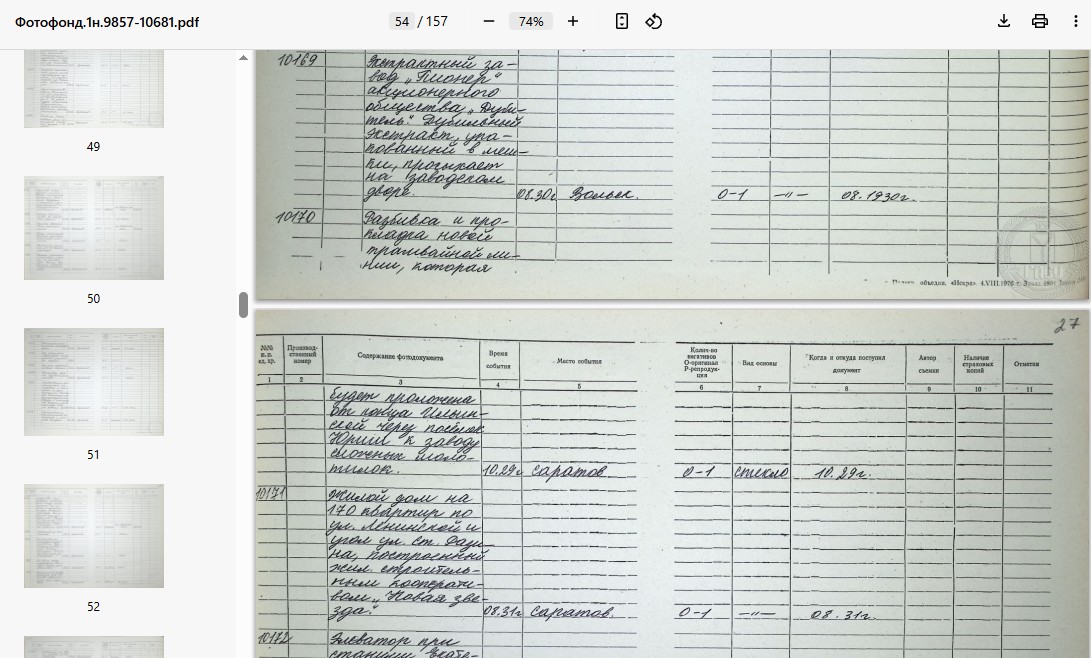 Фотофонд.1н.9857-10681.pdf
54 / 157
74%
49
50
51
52
10169
Экстрактный за-
вод „Пионер"
акционерного
общества „Дуби-
тель". Дубильный
экстракт, упа-
кованный в меш-
ки, просыхает
на заводском
дворе. 08.30г. Вольск. О-1 —"— 08.1930г.
10170
Разбивка и про-
кладка новой
трамвайной ли-
нии, которая
объедин. «Искра». 4.VIII.1976 г.
27
№№ п. п. ед. хр.
Производ-ственный номер
Содержание фотодокумента
Время события
Место события
Колич-во негативов О-оригинал Р-репродук-ция
Вид основы
Когда и откуда поступил документ
Автор съемки
Наличие страховых копий
Отметки
1 2 3 4 5 6 7 8 9 10 11
будет проложена
от конца Ильин-
ской через посёлок
Юриш к заводу
сложных моло-
тилок. 10.29г. Саратов О-1 стекло 10.29г.
10171
Жилой дом на
170 квартир по
ул. Ленинской и
угол ул. ст. Рази-
на, построенный
жил. строитель-
ным кооперати-
вом „Новая зве-
зда." 08.31г. Саратов. О-1 —"— 08.31г.
10172
Элеватор при
станции Екате-